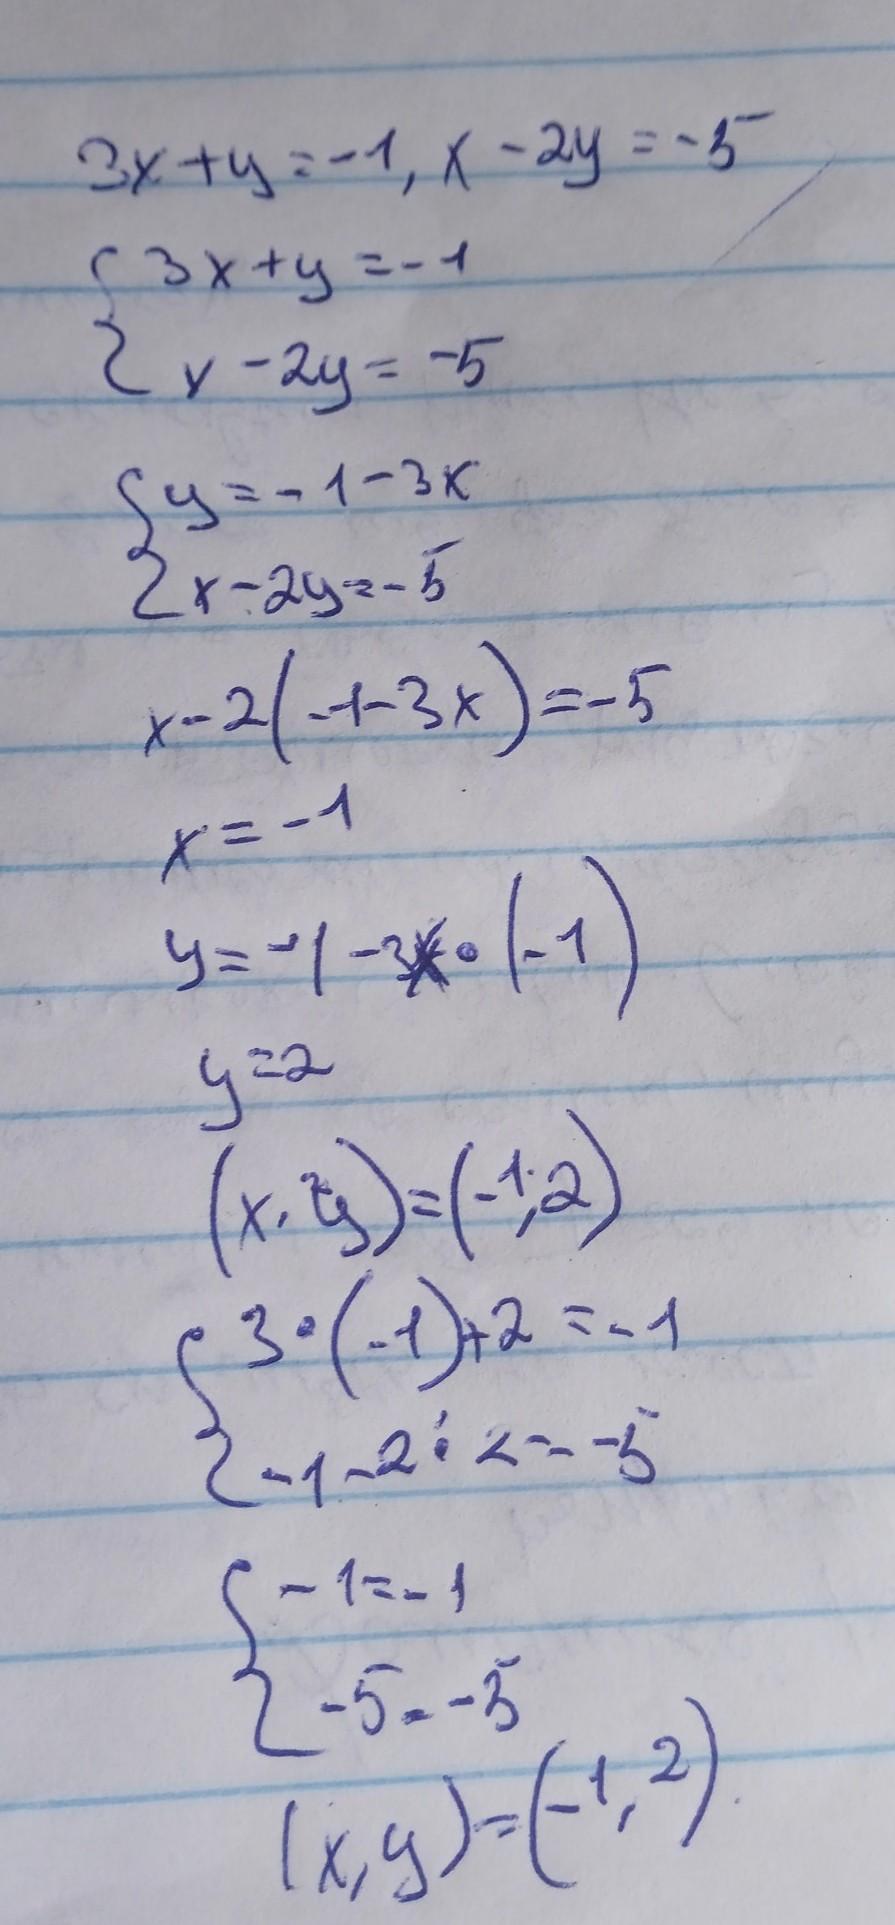 3x+y=-1, x-2y=-5
{3x+y=-1
x-2y=-5
{y=-1-3x
x-2y=-5
x-2(-1-3x)=-5
x=-1
y=-1-3•(-1)
y=2
(x,y)=(-1,2)
{3•(-1)+2=-1
-1-2•2=-5
{-1=-1
-5=-5
(x,y)=(-1,2)